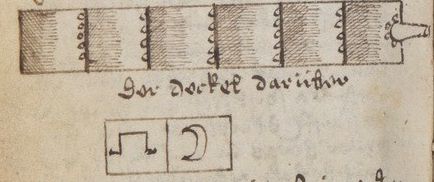 Der deckel darüber